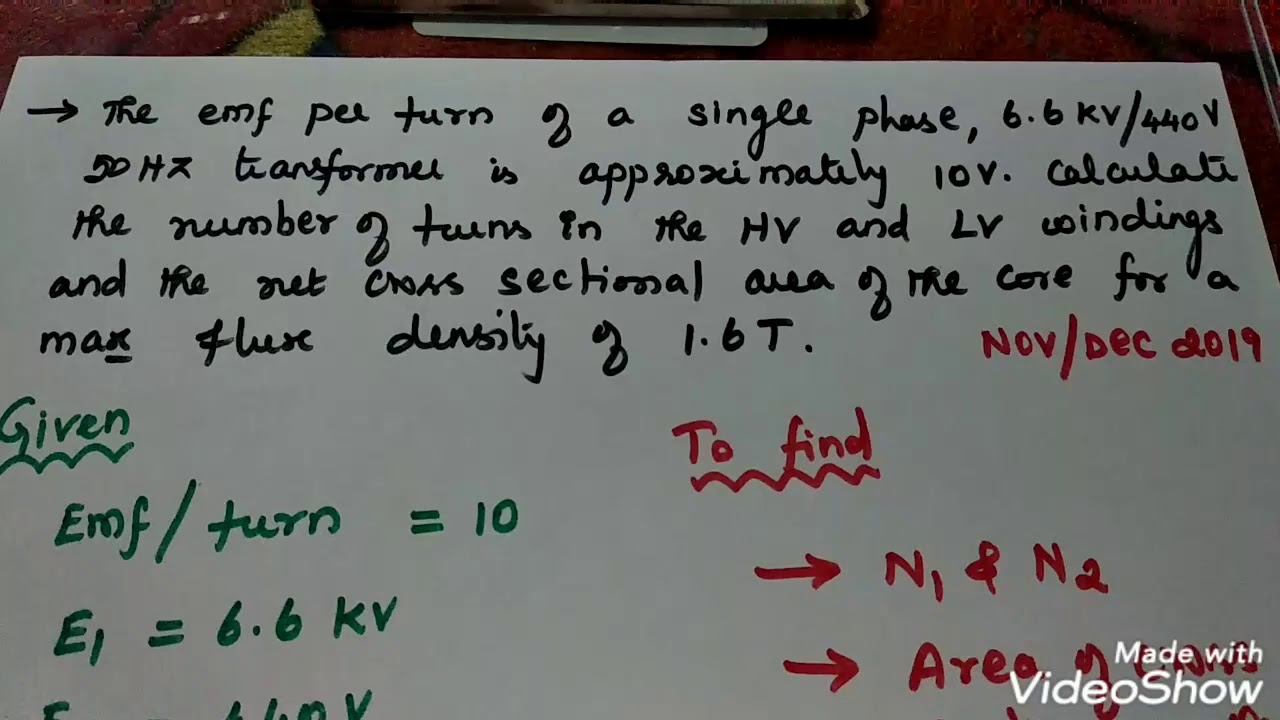 → The emf per turn of a single phase, 6.6 KV/440V
50 HZ transformer is approximately 10V. Calculate
the number of turns in the HV and LV windings
and the net cross sectional area of the core for a
max flux density of 1.6 T.
NOV/DEC 2019
Given
To find
Emf/turn = 10
→ N1 & N2
E1 = 6.6 KV
→ Area of cross
Made with
VideoShow
440V